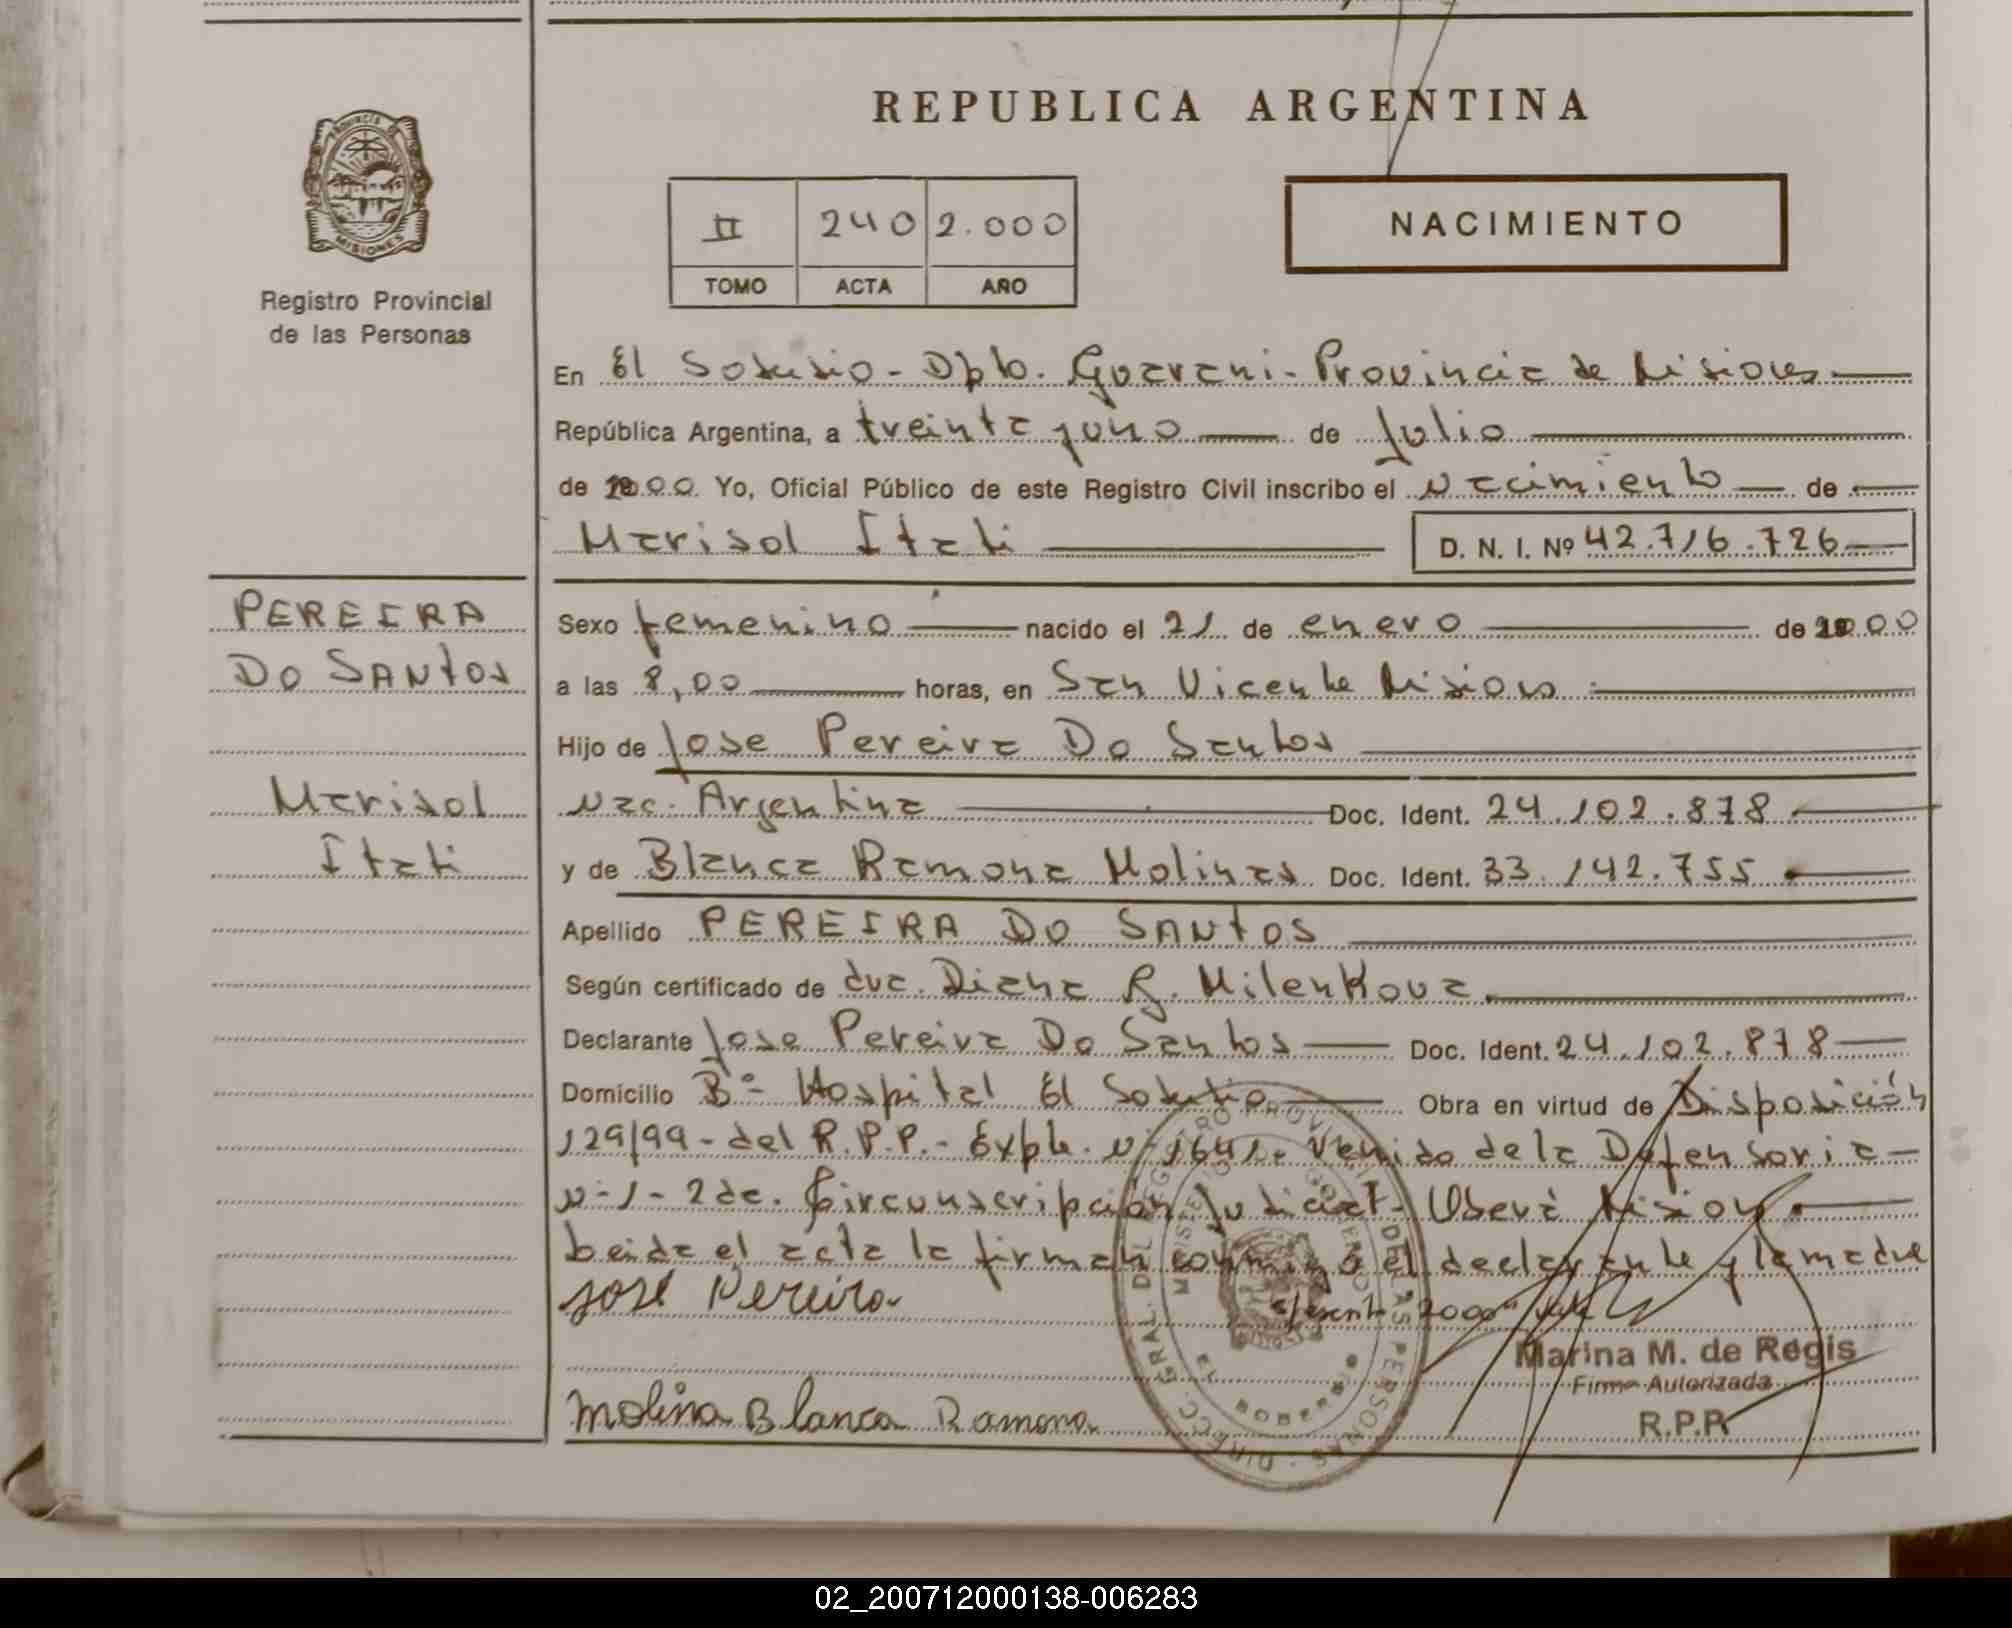 REPUBLICA ARGENTINA
PROVINCIA DE
MISIONES
Registro Provincial
de las Personas
II 240 2.000
TOMO ACTA AÑO
NACIMIENTO
En El Soberbio - Dpto. Guarani - Provincia de Misiones
República Argentina, a treinta y uno de Julio
de 2000 Yo, Oficial Público de este Registro Civil inscribo el nacimiento de
Marisol Itati D. N. I. Nº 42.716.726
PEREIRA
DO SANTOS
Marisol
Itati
Sexo femenino nacido el 21 de enero de 2000
a las 8,00 horas, en San Vicente Misiones
Hijo de Jose Pereira Do Santos
nac. Argentina Doc. Ident. 24.102.878
y de Blanca Ramona Molinas Doc. Ident. 33.142.755
Apellido PEREIRA DO SANTOS
Según certificado de dra. Diana R. Milenkova
Declarante Jose Pereira Do Santos Doc. Ident. 24.102.878
Domicilio Bº Hospital El Soberbio Obra en virtud de Disposición
129/99 - del R.P.P. - Expte. nº 1641. Venido de la Defensoria
nº 1 - 2da. Circunscripción Judicial - Oberá Misiones
Leida el acta la firman conmigo el declarante y la madre
José Pereira
s/ 2000 vale
Marina M. de Regis
Firma Autorizada
R.P.P.
Molina Blanca Ramona
DIRECC. GRAL. DEL REGISTRO PROVINCIAL DE LAS PERSONAS
MINISTERIO GOBIERNO
02_200712000138-006283